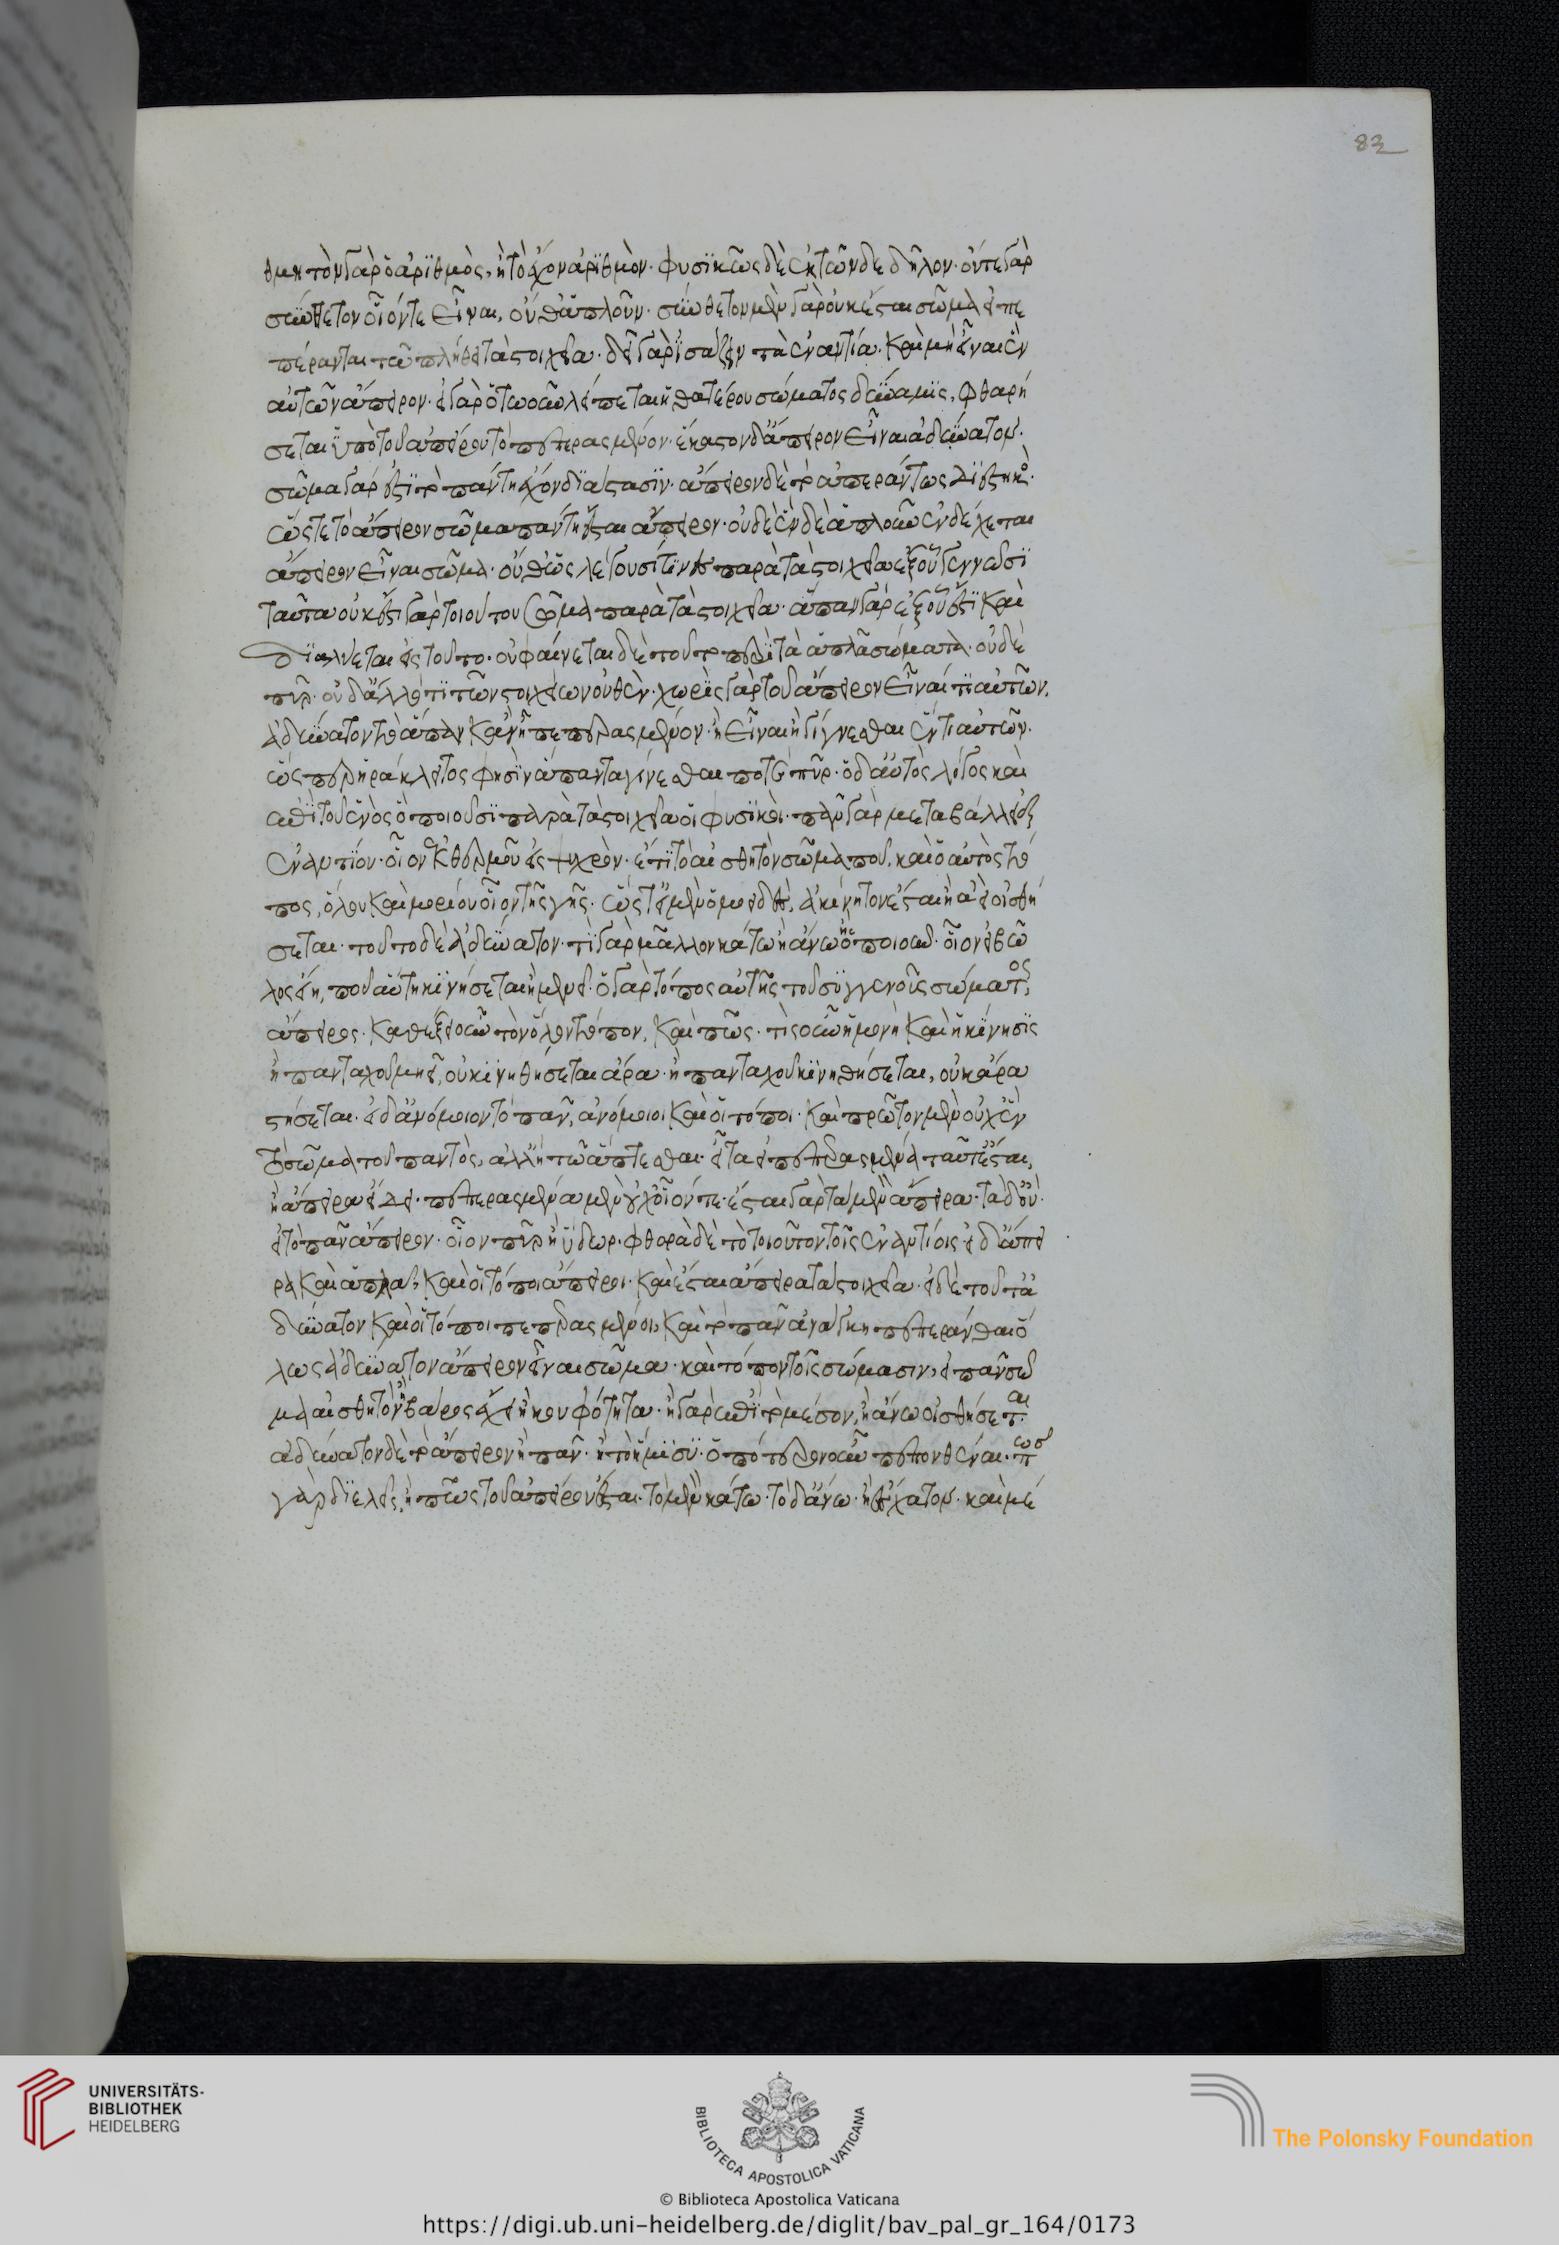 θμητὸν γὰρ ὁ ἀριθμὸς, ἢ τὸ ἔχον ἀριθμὸν· φυσϊκῶς δὲ ἐκ τῶνδε δῆλον· οὔτε γὰρ
σύνθετον οἷόν τε εἶναι, οὔθ' ἁπλοῦν· σύνθετον μὲν γὰρ οὐκ ἔσται σῶμα εἰ πε
πέρανται τῶ πλήθει τὰ στοιχεῖα· δεῖ γὰρ ἰσάζειν τὰ ἐναντία· καὶ μὴ εἶναι ἓν
αὐτῶν ἄπειρον· εἰ γὰρ ὁτωοῦν λείπεται ἡ θατέρου σώματος δύναμις, φθαρή
σεται ὑπὸ τοῦ ἀπείρου τὸ πεπερασμένον· ἕκαστον δ' ἄπειρον εἶναι ἀδύνατον·
σῶμα γάρ ἐστὶ τὸ πάντη ἔχον διάστασιν· ἄπειρον δὲ τὸ ἀπεράντως διεστηκὸ·
ὥστε τὸ ἄπειρον σῶμα πάντη ἔσται ἄπειρον· οὐδὲ ἓν δὲ ἁπλοῦν ἐνδέχεται
ἄπειρον εἶναι σῶμα· οὔθ' ὥς λέγουσί τινες παρὰ τὰ στοιχεῖα ἐξ οὗ γεννῶσι
ταῦτα οὐκ ἔστι γὰρ τοιοῦτον σῶμα παρὰ τὰ στοιχεῖα· ἅπαν γὰρ ἐξ οὗ ἐστὶ καὶ
διαλύεται εἰς τοῦτο· οὐ φαίνεται δὲ τοῦτο παρὰ τὰ ἁπλᾶ σώματα· οὐδὲ
πῦρ· οὐδ' ἄλλό τι τῶν στοιχείων οὐθὲν· χωρὶς γὰρ τοῦ ἄπειρον εἶναί τι αὐτῶν,
ἀδύνατον τὸ ἅπαν κἂν ἦ πεπερασμένον· ἢ εἶναι ἢ γίγνεσθαι ἕν τι αὐτῶν·
ὥς περ ἡράκλειτος φησὶν ἅπαντα γίνεσθαι ποτὲ πῦρ· ὁ δ' αὐτὸς λόγος καὶ
ἐπὶ τοῦ ἑνὸς ὃ ποιοῦσι παρὰ τὰ στοιχεῖα οἱ φυσϊκοὶ· πᾶν γὰρ μεταβάλλει ἐξ
ἐναντίου· οἷον ἐκ θερμοῦ εἰς ψυχρὸν· ἔτι τὸ αἰσθητὸν σῶμα που, καὶ ὁ αὐτὸς τό
πος, ὅλου καὶ μορίου οἷον τῆς γῆς· ὥστ' εἰ μὲν ὁμοειδὲς, ἀκίνητον ἔσται ἢ ἀεὶ οἰσθή
σεται· τοῦτο δὲ ἀδύνατον· τὶ γὰρ μᾶλλον κάτω ἢ ἄνω ἢ ὁποιοοῦν· οἷον εἰ βῶ
λος εἴη, ποῦ αὕτη κινήσεται ἢ μενεῖ· ὁ γὰρ τόπος αὐτῆς τοῦ συγγενοῦς σώματος,
ἄπειρος· καθέξει οὖν τὸν ὅλον τόπον, καὶ πῶς· τὶς οὖν ἡ μονὴ καὶ ἡ κίνησϊς
ἢ πανταχοῦ μενεῖ, οὐ κινηθήσεται ἄρα· ἢ πανταχοῦ κινηθήσεται, οὐκ ἄρα
στήσεται· εἰ δ' ἀνόμοιον τὸ πᾶν, ἀνόμοιοι καὶ οἱ τόποι· καὶ πρῶτον μὲν οὐχ ἓν
τὸ σῶμα τοῦ παντὸς, ἀλλ' ἢ τῶ ἅπτεσθαι· εἶτα ἢ πεπερασμένα ταῦτ' ἔσται,
ἢ ἄπειρα εἴδει· πεπερασμένα μὲν οὐχ οἷόν τε· ἔσται γὰρ τὰ μὲν ἄπειρα· τὰ δ' οὔ·
εἰ τὸ πᾶν ἄπειρον· οἷον πῦρ ἢ ὕδωρ· φθορὰ δὲ τὸ τοιοῦτον τοῖς ἐναντίοις· εἰ δ' ἄπει
ρα καὶ ἁπλᾶ, καὶ οἱ τόποι ἄπειροι· καὶ ἔσται ἄπειρα τὰ στοιχεῖα· εἰ δὲ τοῦτ' ἀ
δύνατον καὶ οἱ τόποι πεπερασμένοι, καὶ τὸ πᾶν ἀνάγκη πεπεράνθαι ὅ
λως ἀδύνατον ἄπειρον εἶναι σῶμα· καὶ τόπον τοῖς σώμασιν, εἰ πᾶν σῶ
μα αἰσθητὸν ἢ βάρος ἔχει ἢ κουφότητα· ἢ γὰρ ἐπὶ τὸ μέσον, ἢ ἄνω οἰσθήσεται·
ἀδύνατον δὲ τὸ ἄπειρον ἢ πᾶν· ἢ τὸ ἥμισυ· ὁπότερον οὖν πεπονθέναι· πῶσ
γὰρ διελεῖς, ἢ πῶς τοῦ ἀπείρου ἔσται· τὸ μὲν κάτω· τὸ δ' ἄνω· ἢ ἔσχατον· καὶ μέ
83
UNIVERSITÄTS-
BIBLIOTHEK
HEIDELBERG
BIBLIOTECA APOSTOLICA VATICANA
The Polonsky Foundation
© Biblioteca Apostolica Vaticana
https://digi.ub.uni-heidelberg.de/diglit/bav_pal_gr_164/0173